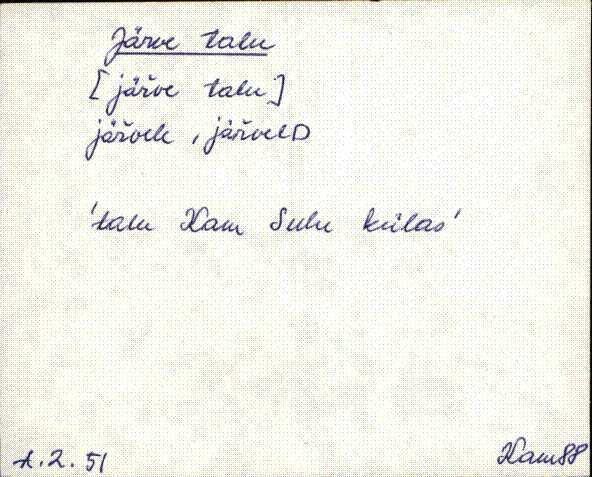 Järve talu
[järve talu]
järvele, järveld
'talu Kam Sulu külas'
A.2.51
Kam88